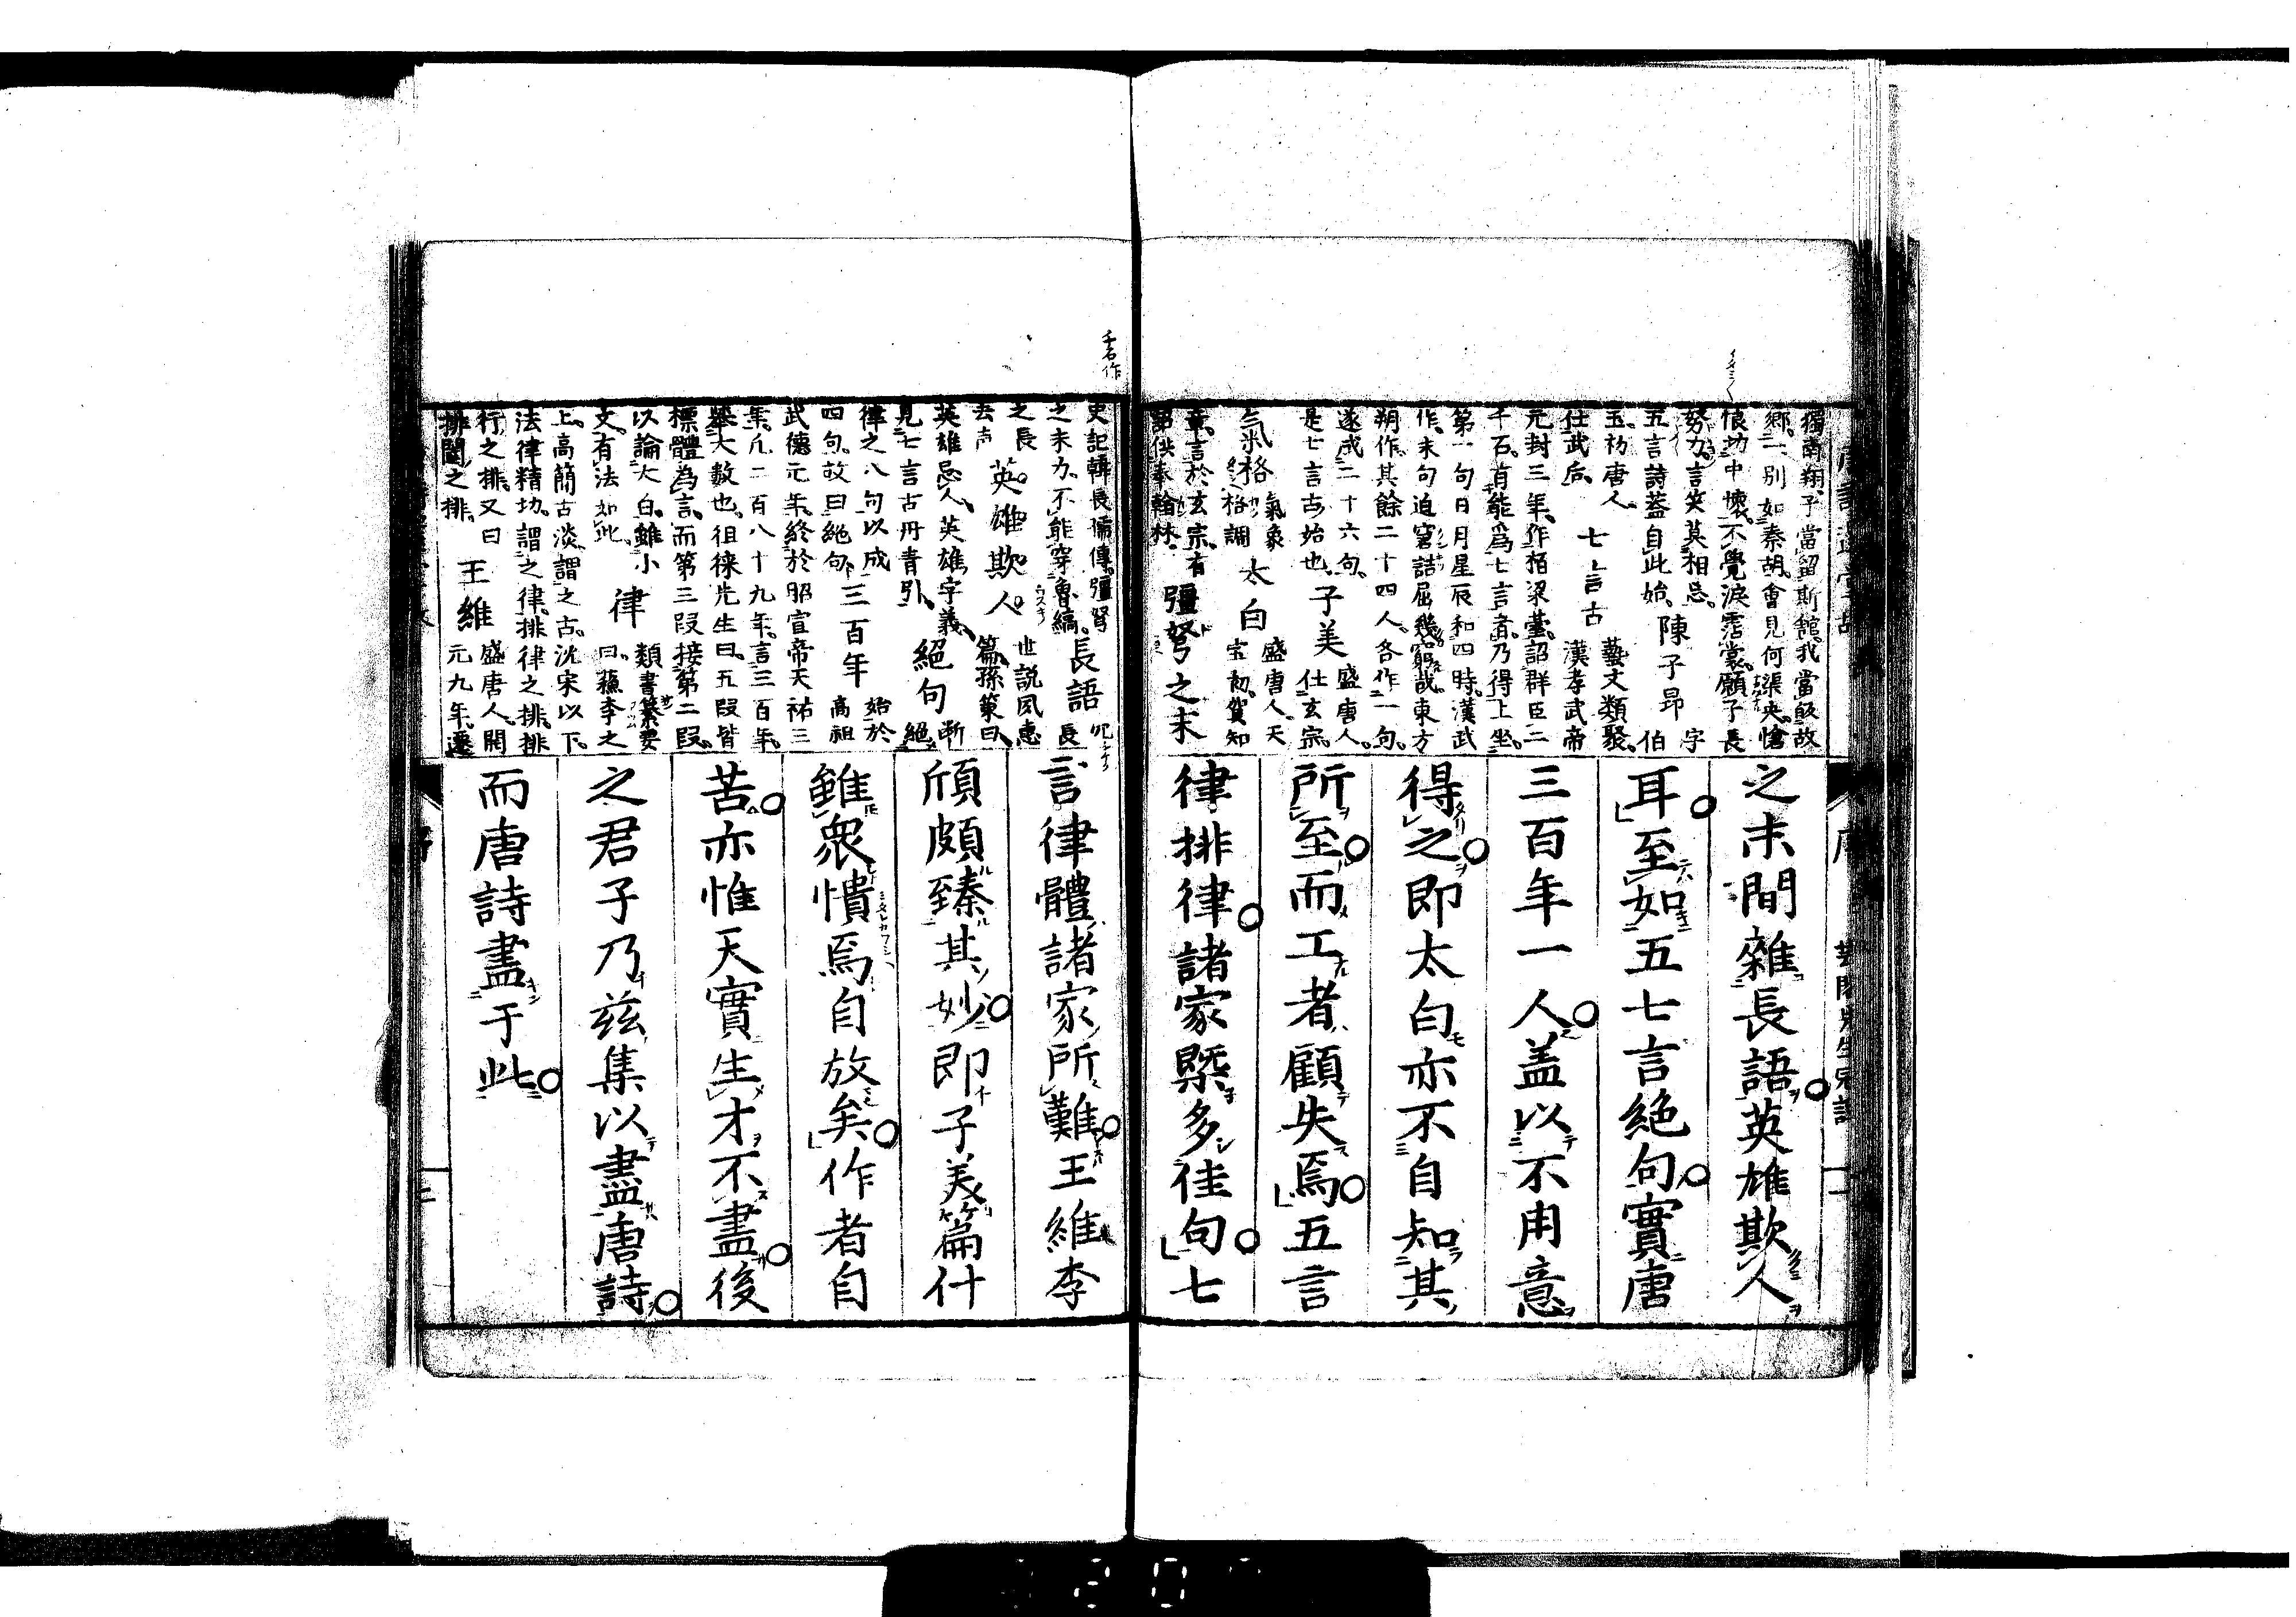 獨南翔、子當留斯館、我當皈故
鄉、一別如秦胡、會見何渠央、愴
悢切中懷、不覺淚霑裳、願子長
努力、言笑莫相忘、
五言詩蓋自此始、陳子昂 字伯
玉、初唐人
仕武后、七言古 藝文類聚、漢孝武帝
元封三年、作栢梁臺、詔群臣二
千石、有能爲七言者、乃得上坐、
第一句日月星辰和四時、漢武
作、末句迫窘詰屈幾窮哉、東方
朔作、其餘二十四人、各作一句、
遂成二十六句、
是七言古始也、子美 盛唐人、仕玄宗、
氣格 氣象格調 太白 盛唐人、天宝初、賀知
章、言於玄宗、有
詔供奉翰林、彊弩之末
之末間雜長語英雄欺人
耳至如五七言絶句實唐
三百年一人盖以不用意
得之即太白亦不自知其
所至而工者顧失焉五言
律排律諸家槩多佳句七
史記韓長孺傳、彊弩
之末力、不能穿魯縞、長語 長
之長
去声 英雄欺人 世説夙惠
篇、孫策曰、
英雄忌人、英雄字義、
見七言古丹青引、絕句 絕
律之八句以成
四句、故曰絕句、三百年 始於高祖
武德元年、終於昭宣帝天祐三
年、凡二百八十九年、言三百年、
舉大數也、徂徠先生曰、五段皆
標體為言、而第三段接第二段、
以論太白、雖小
文、有法如此、律 類書纂要曰、蘇李之
上、高簡古淡、謂之古、沈宋以下、
法律精切、謂之律、排律之排、排
行之排、又曰
排闥之排、王維 盛唐人、開元九年、遷
言律體諸家所難王維李
頎頗臻其妙即子美篇什
雖衆憒焉自放矣作者自
苦亦惟天實生才不盡後
之君子乃茲集以盡唐詩
而唐詩盡于此